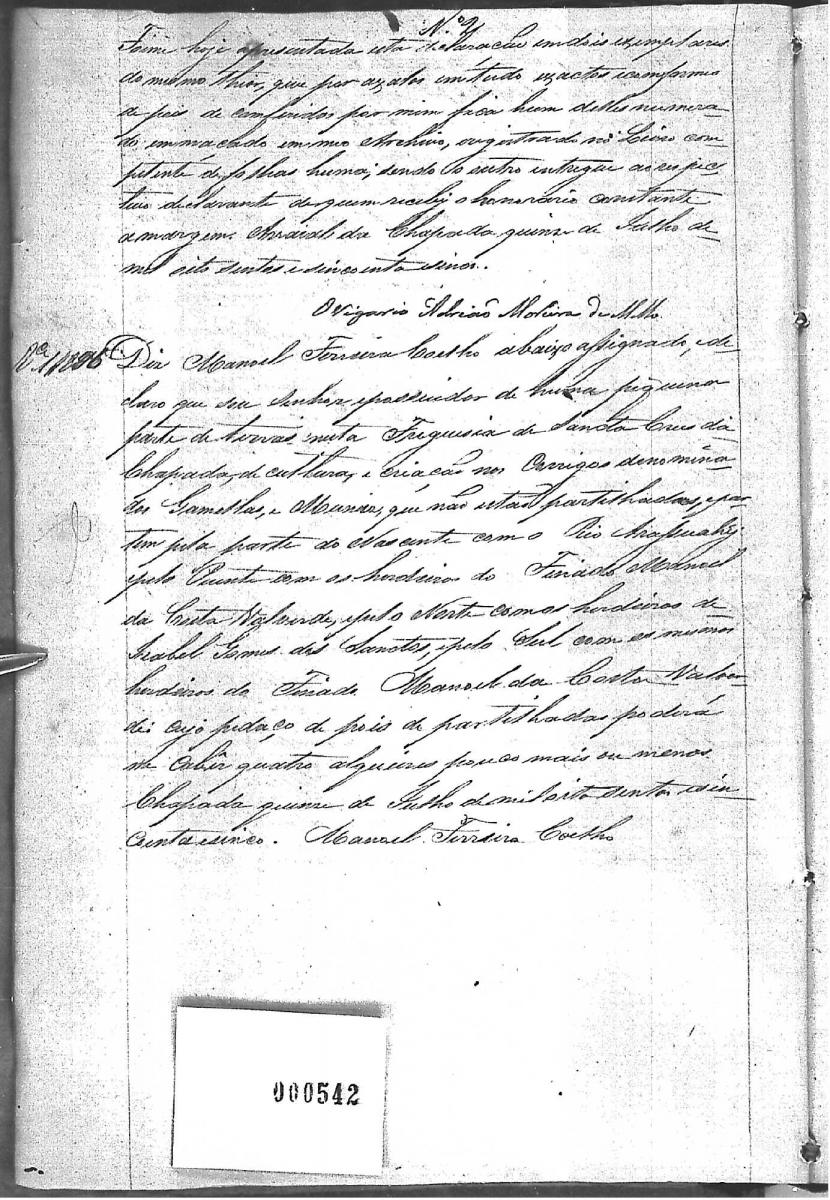 N.º 2
Foime hoje apresentada esta declaração em dois exemplares
do mesmo theor, que por axalos em tudo exactos e conformes
de pois de comferidos por mim fica hum delles numera-
do emmaçado em meo Archivo, e registrado no Livro com-
petente de folhas huma; sendo o outro intregue ao respec-
tivo declarante de quem recebi o honorario constante
a margem. Arraial da Chapada quinse de Julho de
mil oito sentos e sincoenta e sinco.
O Vigario Adrião Moreira de
Diz Manoel Ferreira Coelho abaixo assignado, e de-
claro que sou Senhor, e possuidor de huma piquena
parte de terras nesta Freguesia de Sancta Crus da
Chapada, de cultura, e criação nos Corrigos denomina-
dos Gamellas, e Munis, que não estão partilhadas, e par-
tem pela parte do Nascente com o Rio Arassuahy
e pelo Puente com os herdeiros do Finado Manoel
da Costa Valverde, e pelo Norte com os herdeiros de
Izabel Gomes dos Sanctos, e pelo Sul com os mesmos
herdeiros do Finado Manoel da Costa Valver-
de: cujo pedaço de pois de partilhadas poderá
me cabêr quatro alqueires pouco mais ou menos.
Chapada quinse de Julho de mil oito sentos e sin-
coenta e sinco. Manoel Ferreira Coelho
000542